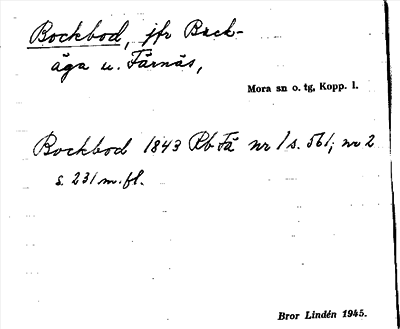 Bockbod, jfr Bock-
äga u. Färnäs,
Mora sn o. tg, Kopp. l.
Bockbod 1843 Rb Fä nr 1 s. 561; nr 2
s. 231 m. fl.
Bror Lindén 1945.